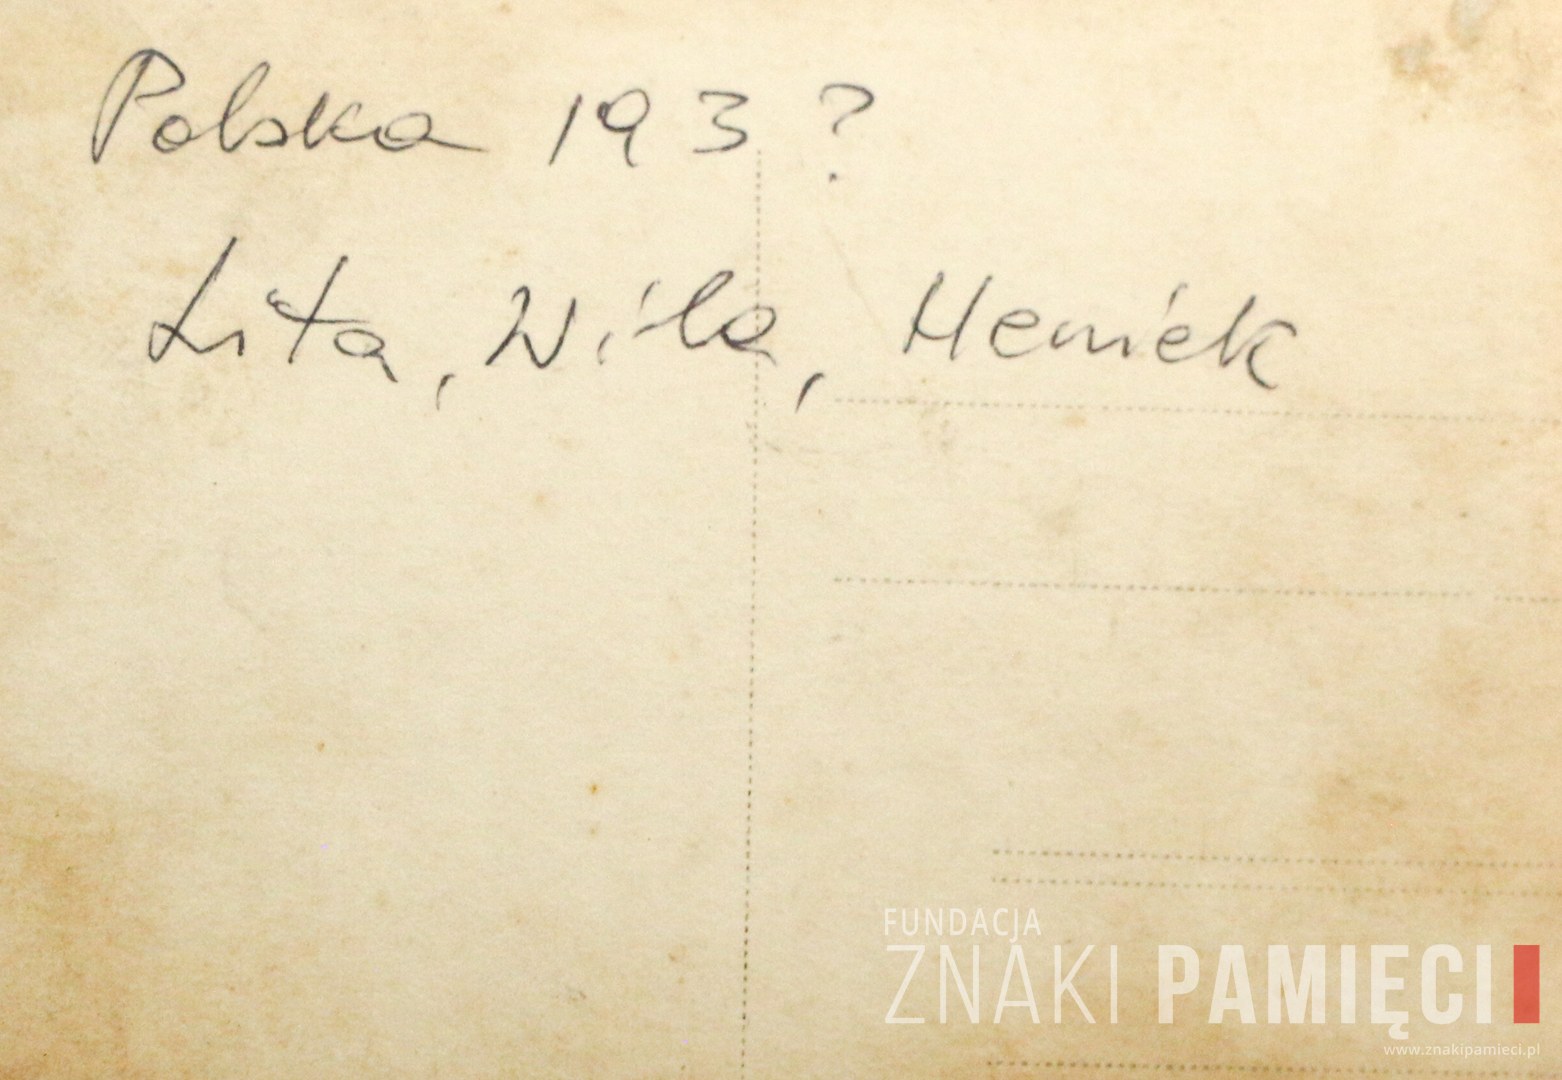 Polska 193?
Lita, Wila, Heniek
FUNDACJA
ZNAKI PAMIĘCI
www.znakipamieci.pl